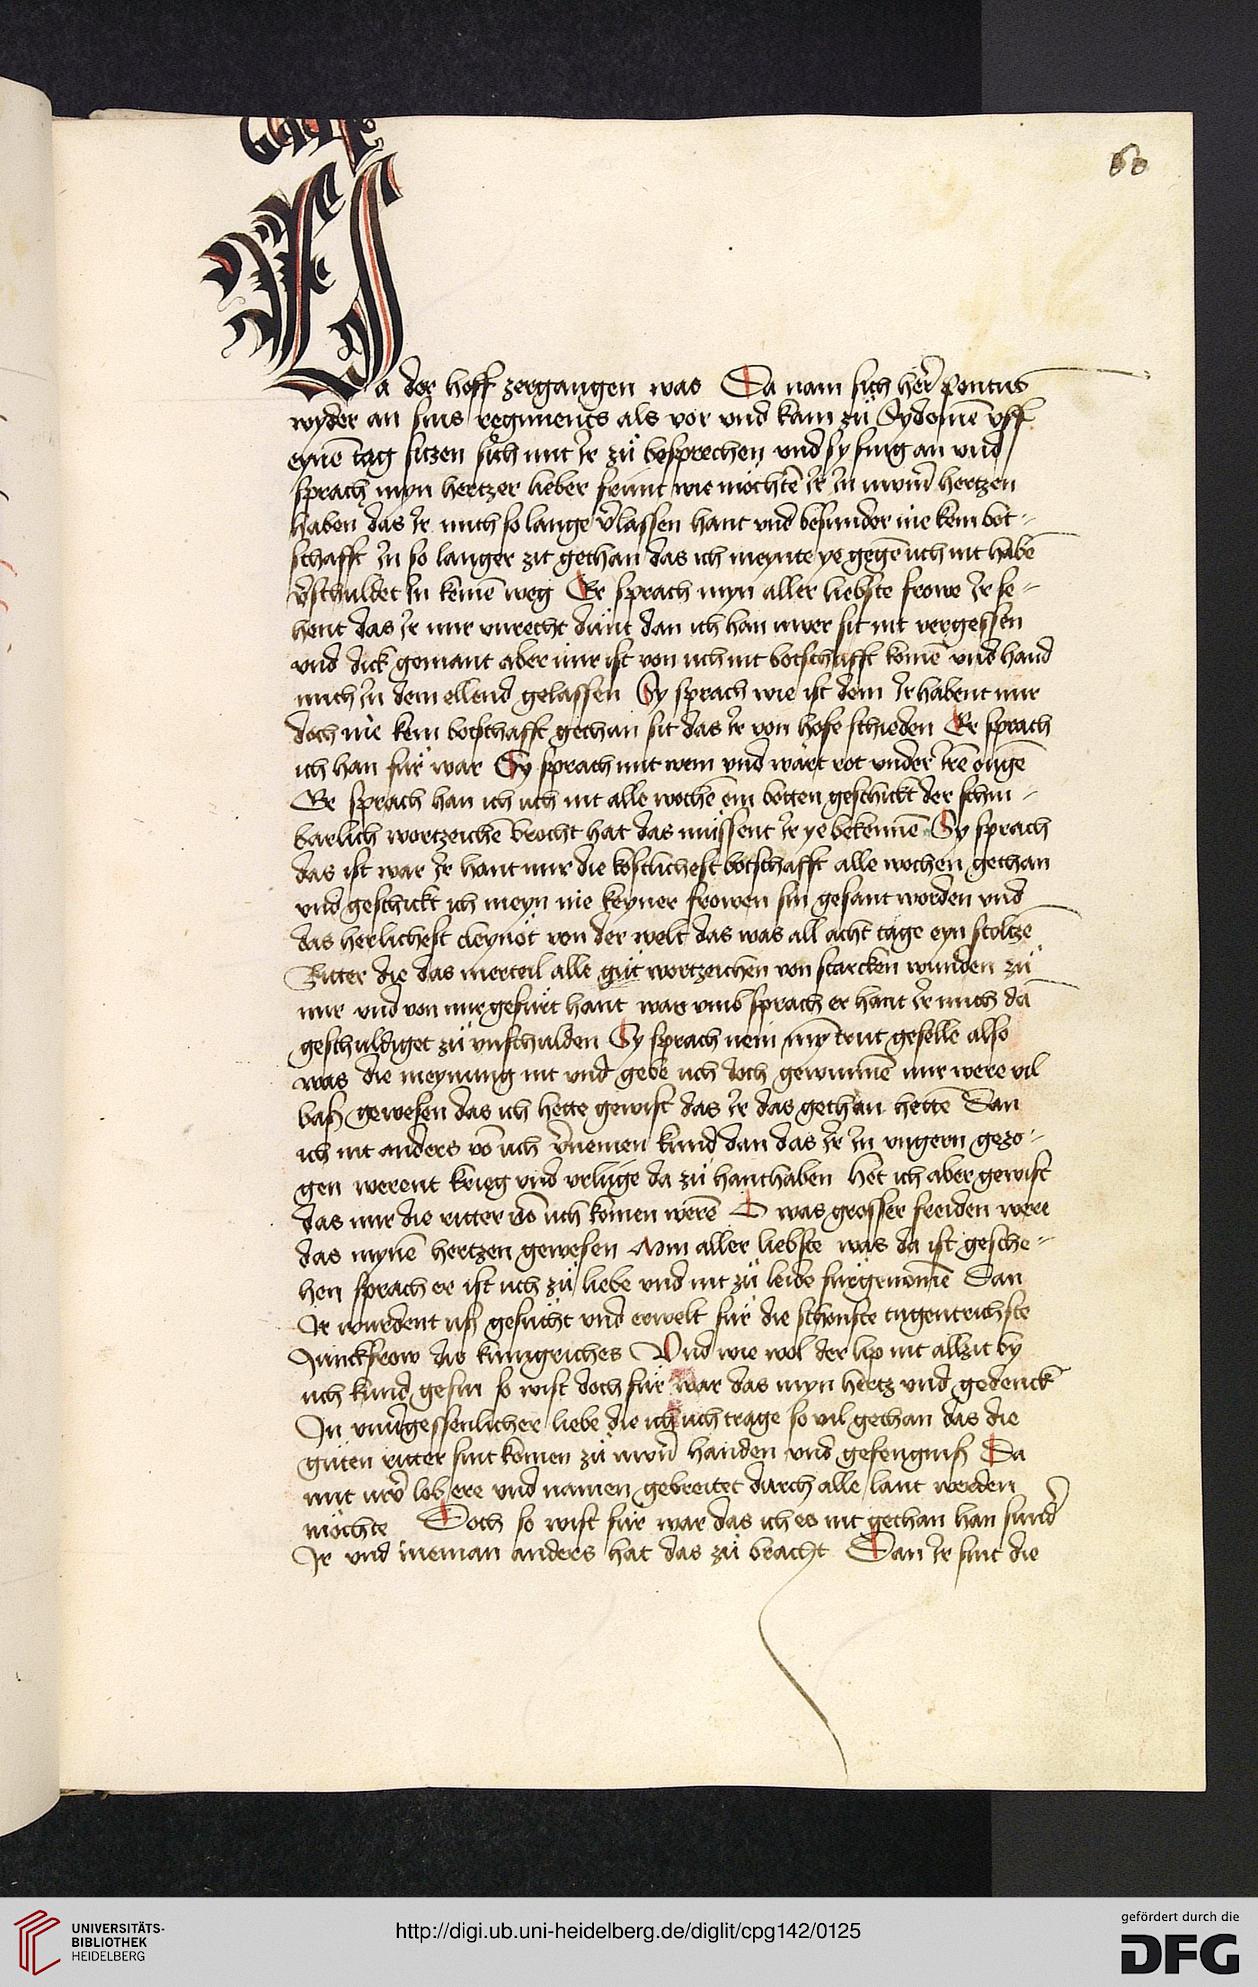 60
Da der hoff zergangen was Da nam sich her̃ pontus
wyder an sins regiments als vor vnd kam zü Sydomē vff
eynē tag sitzen sich mit Ir zü besprechen vnd sy fing an vnd
sprach myn hertzer lieber frünt wie möchtē Ir In uwerm̄ hertzen
haben das Ir mich so lange v̄lassen hant vnd besunder nie kein bot-
schafft In so langer zit gethan das ich meynte ye gegē uch nit habē
v̄schuldet In keinē weg Er sprach myn aller liebste frowe Ir se-
hent das Ir mir vnrecht dünt dan ich han uwer sit nit vergessen
vnd dick gemant aber mir ist von uch nit botschafft komē vnd hand
mich In dem ellend gelassen Sy sprach wie ist dem Ir habent mir
doch nie kein botschafft gethan sit das Ir von hofe schieden Er sprach
ich han für war Sy sprach mit wem vnd wart rot vnder Irē ougē
Er sprach han ich uch nit alle wochē ein botten geschickt der schin-
barlich wortzeichē brocht hat das müssent Ir ye bekennē Sy sprach
das ist war Ir hant mir die köstlichest botschafft alle wochen gethan
vnd geschickt ich meyn nie keyner frowen sin gesant worden vnd
das herlichest cleynöt von der welt das was all acht tage eyn stoltzē
Ritter die das merteil alle güt wortzeichen von starcken wunden zü
mir vnd von mir gefürt hant war vmb sprach er hant Ir mich dā
geschuldiget zü vnschulden Sy sprach nein my trut geselle also
was die meynung nit vnd gebe uch doch gewunnē mir were vil
baß gewesen das ich hette gewist das Ir das gethan hettē Dan
ich nit anders vō uch v̄nemen kund dan das Ir In vngern gezo-
gen werent krieg vnd vrlüge da zü hanthaben Het ich aber gewist
das mir die ritter vō uch komen werē O was grosser freiden were
das mynē hertzen gewesen Min aller liebste was da ist gesche-
hen sprach er ist uch zü liebe vnd nit zü leide fürgenomē Dan
Ir wurdent uß gesücht vnd erwelt für die schönste tugentrichste
Junckfrow dis künigriches Vnd wie wol der lip nit allzit by
uch kund gesin so wist doch für war das myn hertz vnd gedenck
In vnūgessenlicher liebe die ich uch trage so vil gethan das die
güten ritter sint komen zü uwern̄ handen vnd gefengniß Da
mit uwr̄ lob ere vnd namen gebreitet durch alle lant werden
möchte Doch so wist für war das ich es nit gethan han sund̄
Ir vnd nieman anders hat das zü bracht Dan Ir sint die
UNIVERSITÄTS-
BIBLIOTHEK
HEIDELBERG
http://digi.ub.uni-heidelberg.de/diglit/cpg142/0125
gefördert durch die
DFG